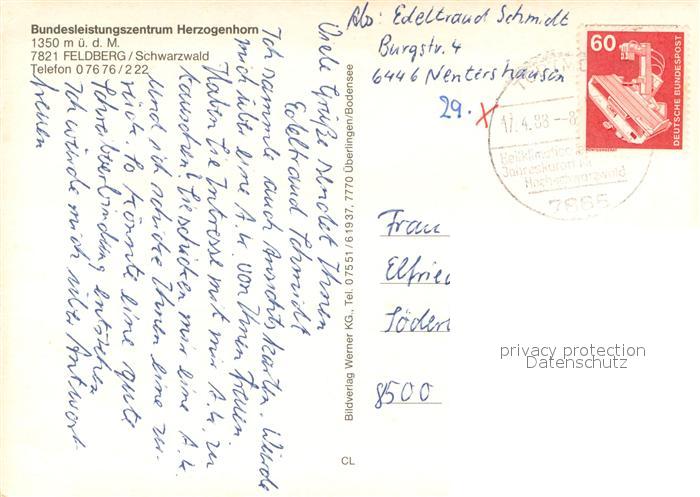 Bundesleistungszentrum Herzogenhorn
1350 m ü. d. M.
7821 FELDBERG / Schwarzwald
Telefon 0 76 76 / 2 22
Ich sammle auch Ansichtskarten. Würde
mich über eine A.K. von Ihnen freuen
Haben Sie Interesse mit mir A.K. zu
tauschen? Sie schicken mir eine A.K.
und ich schicke Ihnen eine zu-
rück. So könnte eine gute
Schreibverbindung entstehen
Ich würde mich über Antwort
freuen
Viele Grüße sendet Ihnen
Edeltraud Schmidt
Bildverlag Werner KG., Tel. 0 75 51 / 6 19 37, 7770 Überlingen/Bodensee
CL
Abs: Edeltraud Schmidt
Burgstr. 4
6446 Nentershausen
29. X
60
DEUTSCHE BUNDESPOST
17.4.88-8
Heilklimatischer
Jahreskurort
Hochschwarzwald
7868
Frau
Elfrie
Söder
8500
privacy protection
Datenschutz